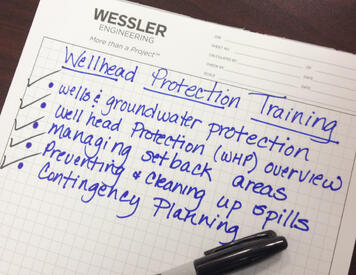 WESSLER
ENGINEERING
More than a Project™
JOB
SHEET NO. OF
CALCULATED BY DATE
CHECKED BY DATE
SCALE
Wellhead Protection Training
• wells & groundwater protection
• Well head Protection (WHP) overview
• managing setback areas
• Preventing & cleaning up spills
• Contingency Planning